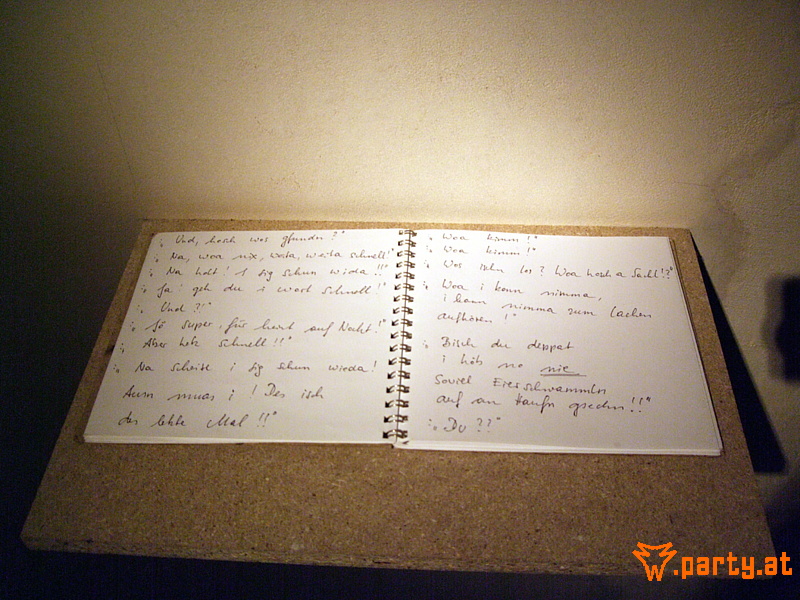 „ Und, hosch wos gfundn?"
„ Na, woa nix, weita, weita schnell!"
„ Na halt! I sig schun wieda!!"
„ Ja! geh du i wort schnell!"
„ Und?!"
„ Jö super, für heit auf Nocht!"
„ Aber hetz schnell!!"
„ Na scheiß i sig schun wieda!
Aussn muas i! Des isch
des letzte Mal!!"
„ Woa kimm!"
„ Woa kimm!"
„ Wos isch los? Woa hosch a Sackl!?"
„ Woa i konn nimma,
i konn nimma zum lachen
aufhören!"
„ Bisch du deppat
i hob no nie
Soviel Eierschwammln
auf an Haufn gsechn!!"
„ Du??"
W.party.at